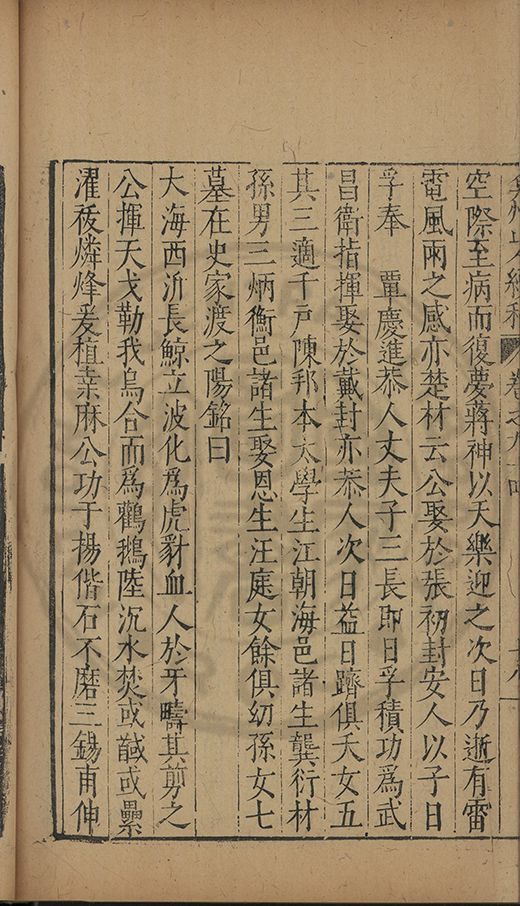 弇州史續稿 卷之九十四 十八
空際至病而復慶蔣神以天樂迎之次日乃逝有雷
電風雨之感亦楚材云公娶於張初封安人以子日
孚奉 覃慶進恭人丈夫子三長即日孚積功爲武
昌衛指揮娶於戴封亦恭人次日益日躋俱夭女五
其三適千戶陳邦本太學生江朝海邑諸生龔衍材
孫男三炳衡邑諸生娶恩生汪庭女餘俱幼孫女七
墓在史家渡之陽銘曰
大海西泝長鯨立波化爲虎豺血人於牙疇其剪之
公揮天戈勒我烏合而爲鸛鵝陸沉水焚或馘或纍
濯祓燐烽爰植菉麻公功于揚偕石不磨三錫甫伸